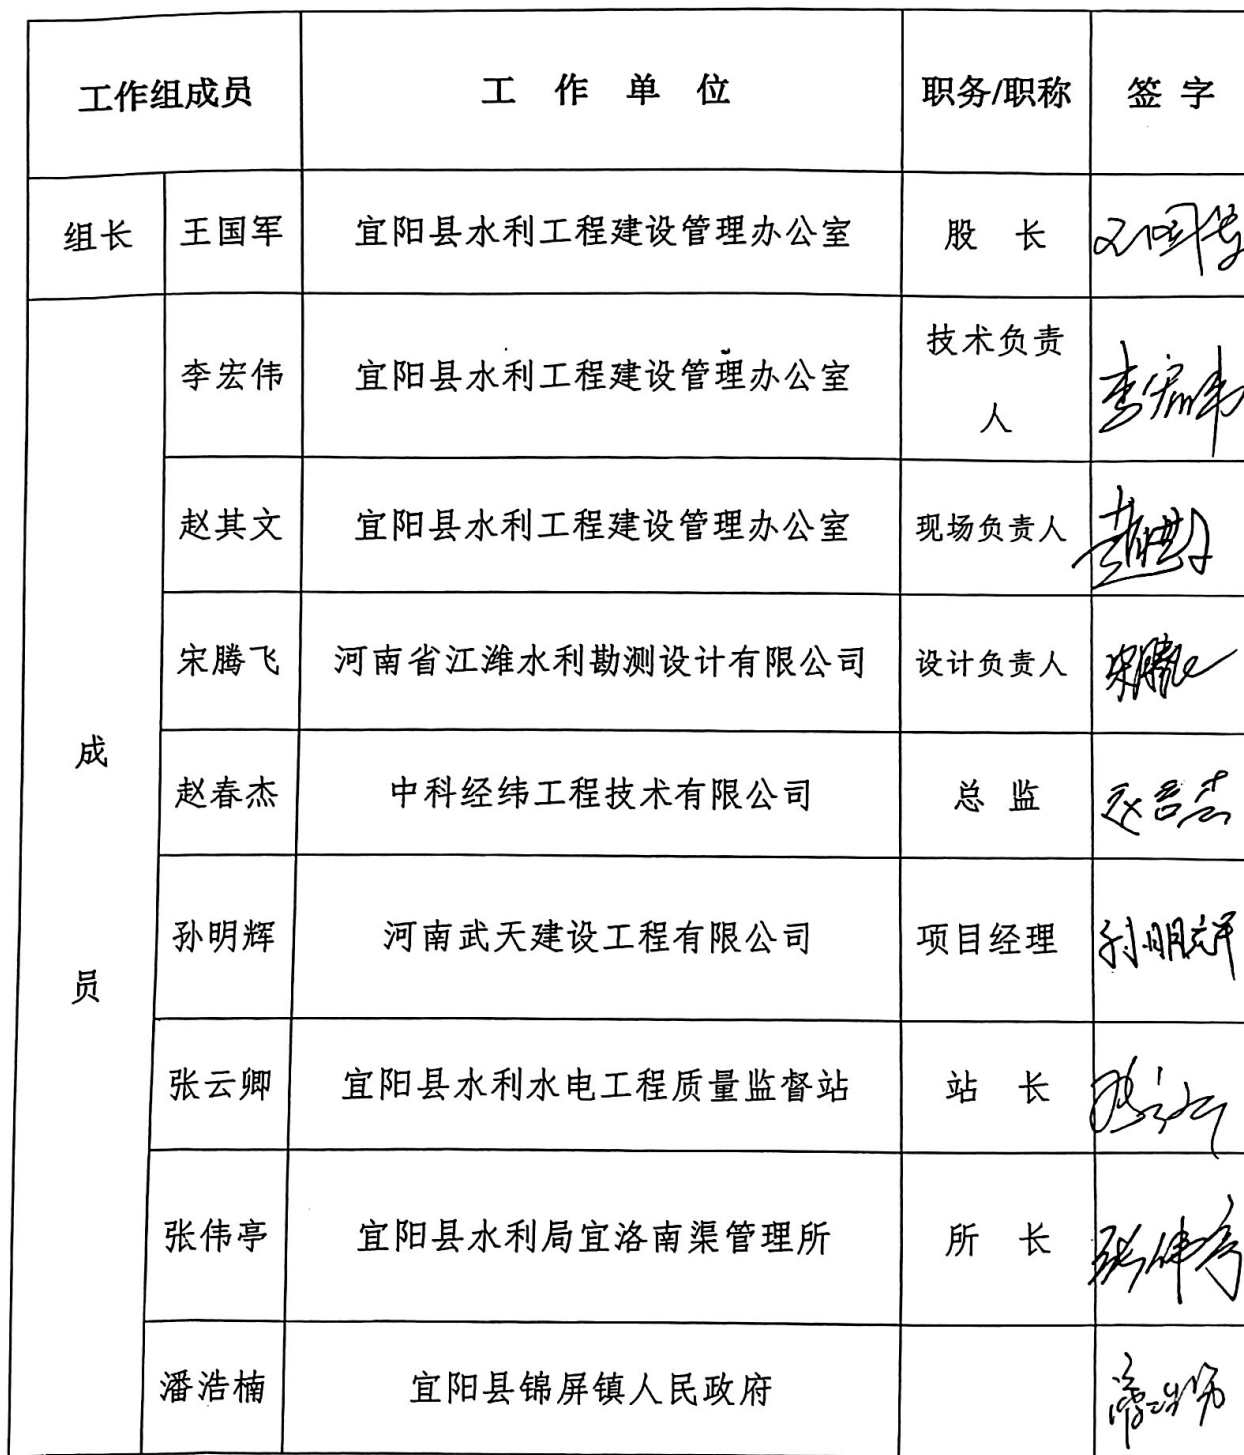 工作组成员 工 作 单 位 职务/职称 签 字
组长 王国军 宜阳县水利工程建设管理办公室 股 长 王国军
李宏伟 宜阳县水利工程建设管理办公室 技术负责
人 李宏伟
赵其文 宜阳县水利工程建设管理办公室 现场负责人 赵其文
宋腾飞 河南省江潍水利勘测设计有限公司 设计负责人 宋腾飞
成
赵春杰 中科经纬工程技术有限公司 总 监 赵春杰
孙明辉 河南武天建设工程有限公司 项目经理 孙明辉
员
张云卿 宜阳县水利水电工程质量监督站 站 长
张伟亭 宜阳县水利局宜洛南渠管理所 所 长 张伟亭
潘浩楠 宜阳县锦屏镇人民政府